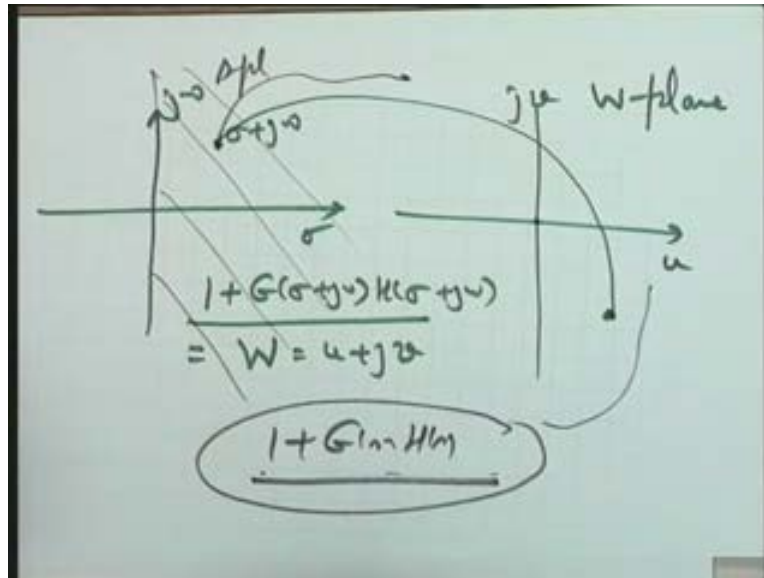 s pl
jω
σ+jω
jv W-plane
σ
u
1+G(σ+jω)H(σ+jω)
= W = u+jv
1+G(s)H(s)